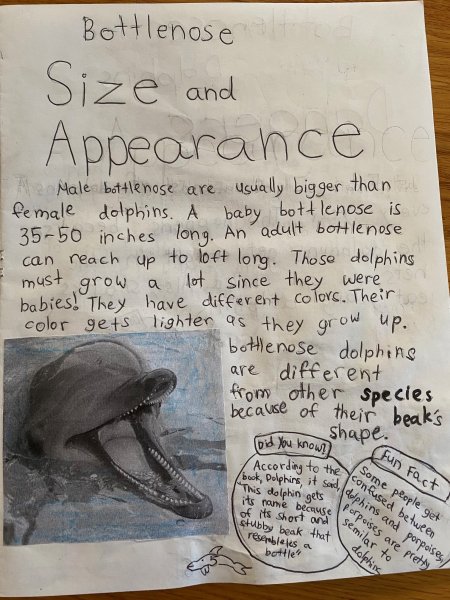 Bottlenose
Size and
Appearance
Male bottlenose are usually bigger than
female dolphins. A baby bottlenose is
35-50 inches long. An adult bottlenose
can reach up to 10ft long. Those dolphins
must grow a lot since they were
babies! They have different colors. Their
color gets lighten as they grow up.
bottlenose dolphins
are different
from other species
because of their beak's
shape.
Did you know?
According to the
book, Dolphins, it said,
This dolphin gets
its name because
of its short and
stubby beak that
resembeles a
bottle"
Fun Fact
Some people get
confused between
dolphins and porpoises,
porpoises are pretty
semilar to
dolphins